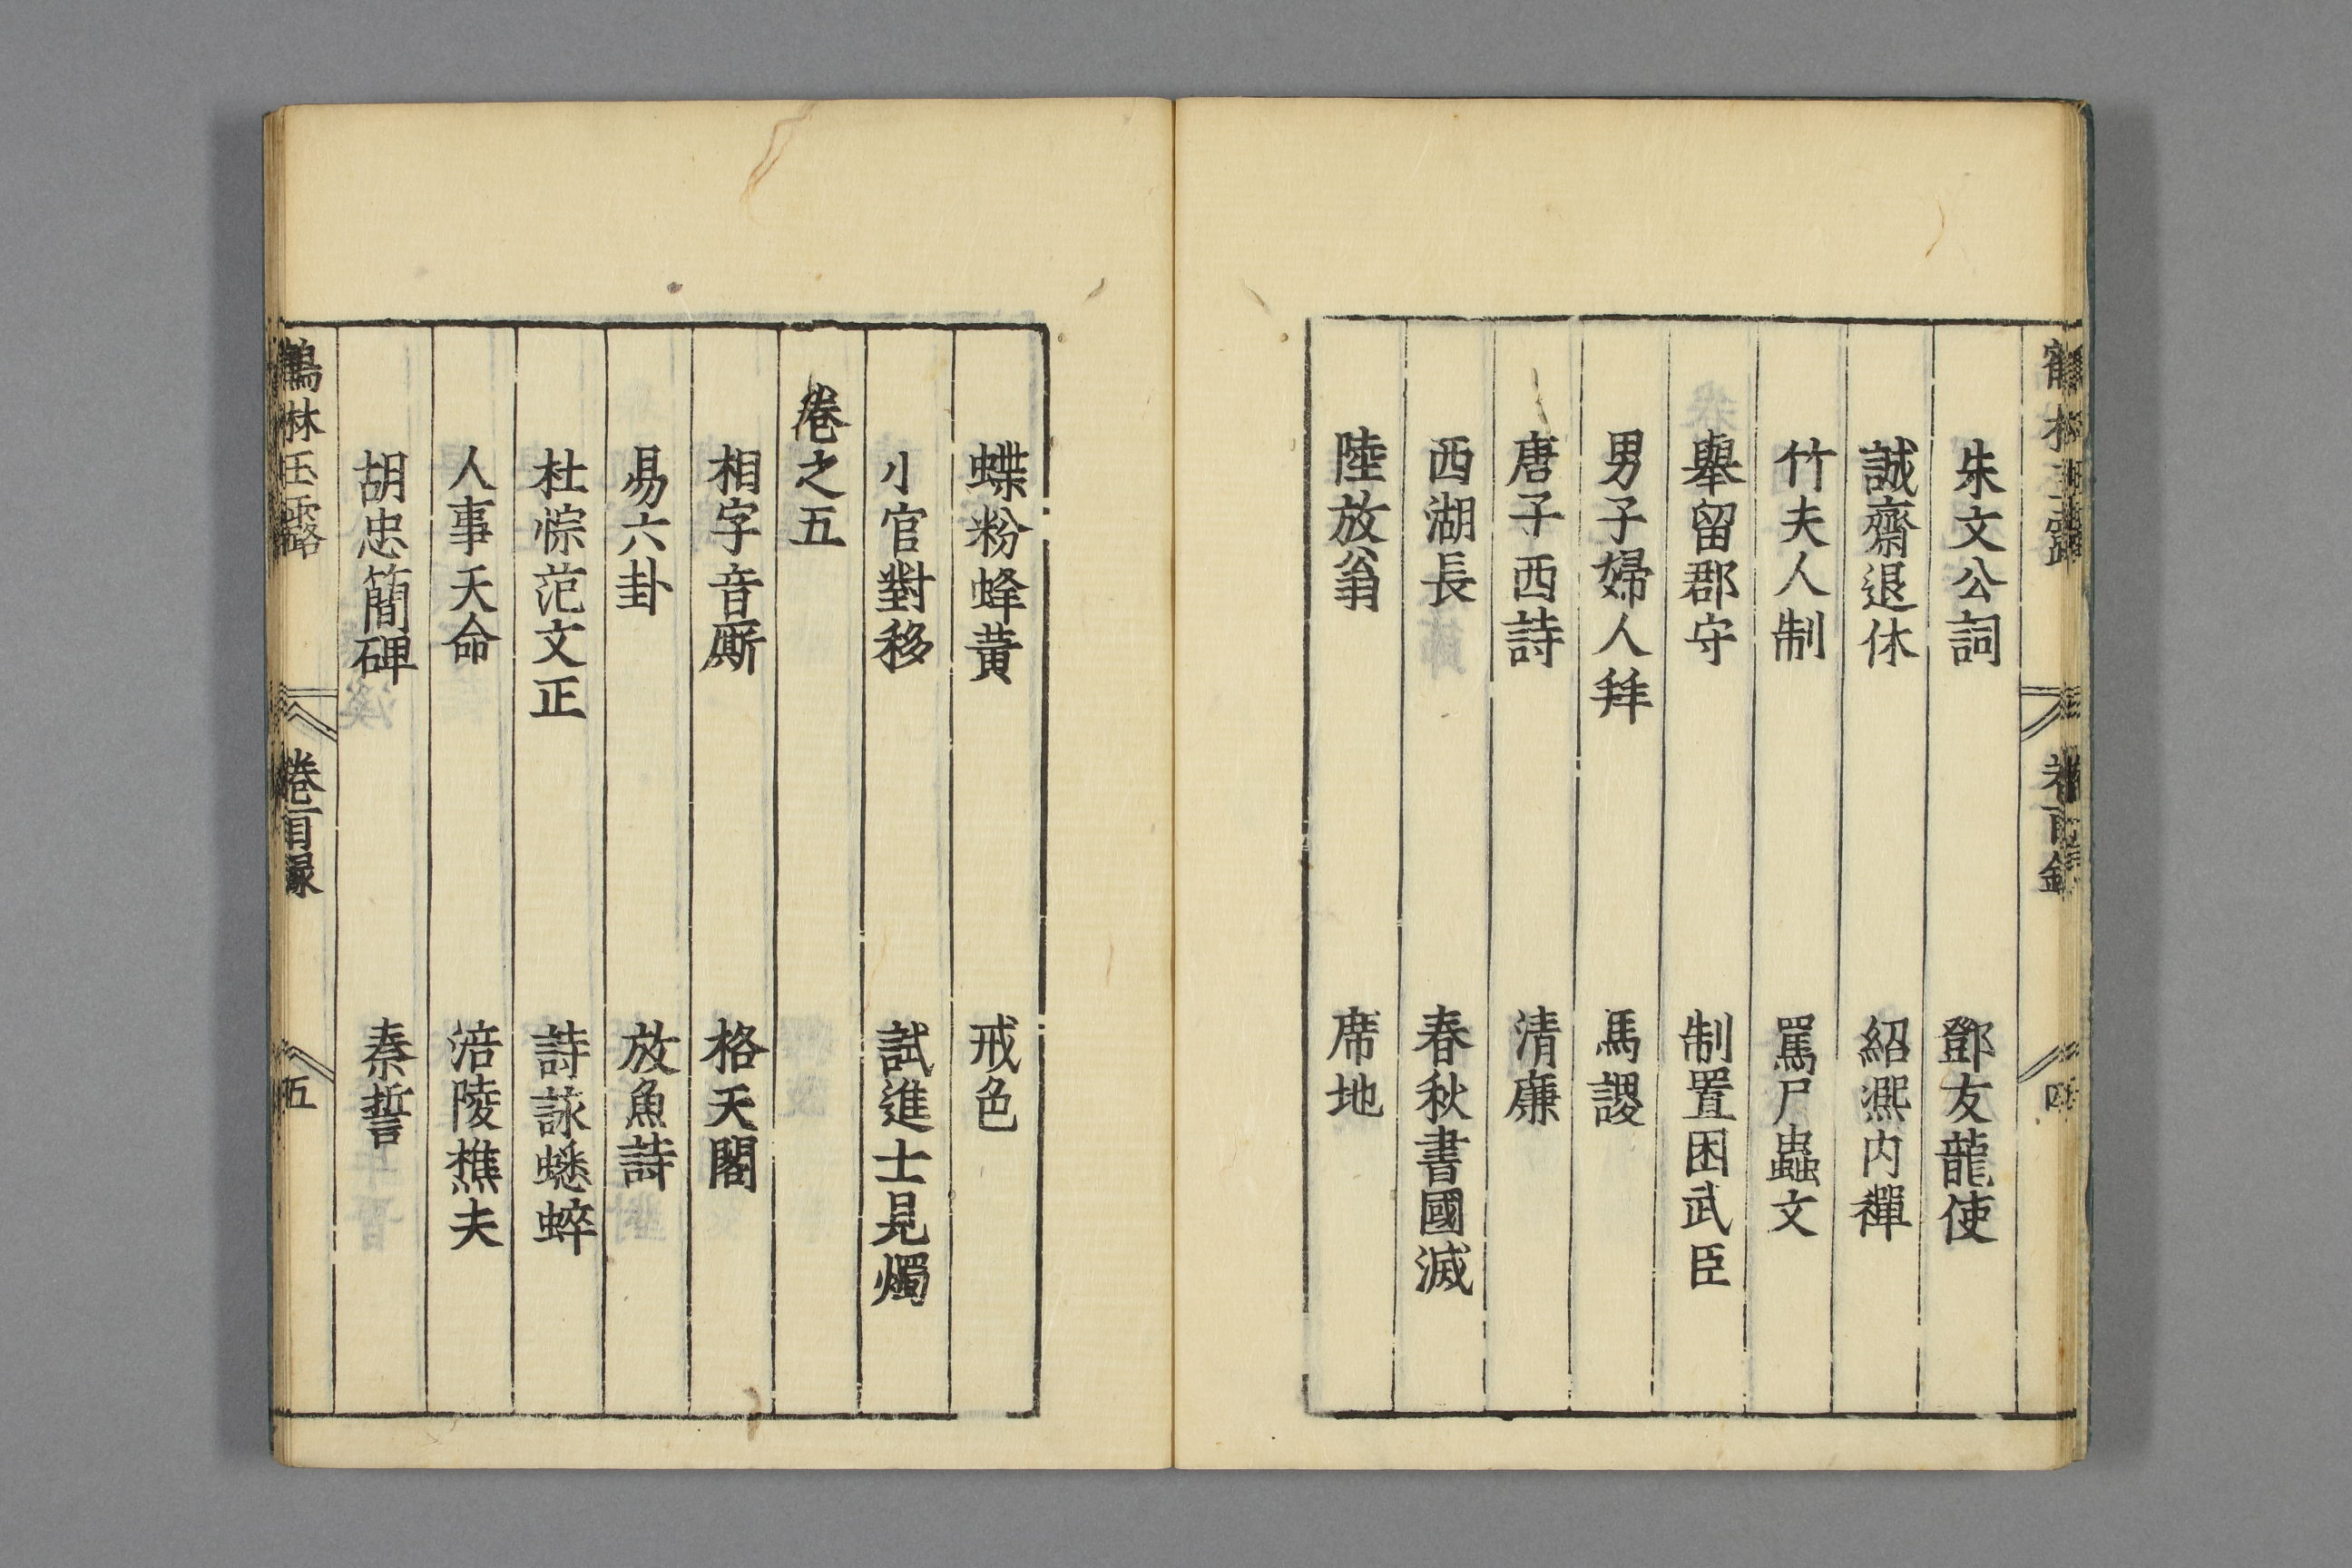 朱文公詞　鄧友龍使
誠齋退休　紹熙内禪
竹夫人制　罵尸蟲文
舉留郡守　制置困武臣
男子婦人拜　馬謖
唐子西詩　清廉
西湖長　春秋書國滅
陸放翁　席地
蝶粉蜂黃　戒色
小官對移　試進士見燭
卷之五
相字音厮　格天閣
易六卦　放魚詩
杜悰范文正　詩詠蟋蟀
人事天命　涪陵樵夫
胡忠簡碑　秦誓
鶴林玉露　卷首目録　五